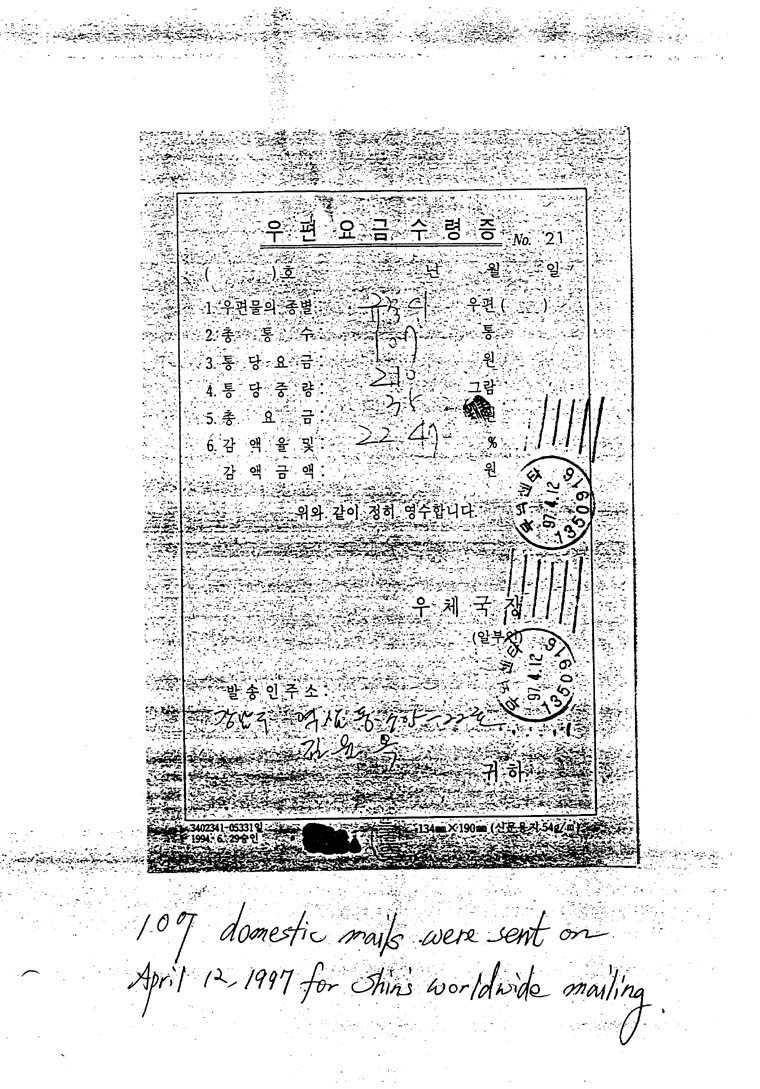 우 편 요 금 수 령 증 No. 21
( ) 호 년 월 일
1. 우편물의 종별: 우편 ( )
2. 총 통 수: 107 통
3. 통 당 요 금: 210 원
4. 통 당 중 량: 그람
5. 총 요 금: 원
6. 감 액 율 및: %
감 액 금 액: 원
위와 같이 정히 영수합니다
97.4.12
135091916
우 체 국 장
(일부인)
97.4.12
135091916
발 송 인 주 소:
강남구
귀 하
3402341-05331일
1994. 6. 29승인
134㎜×190㎜ (신문용지 54g/㎡)
107 domestic mails were sent on
April 12, 1997 for Shin's worldwide mailing.